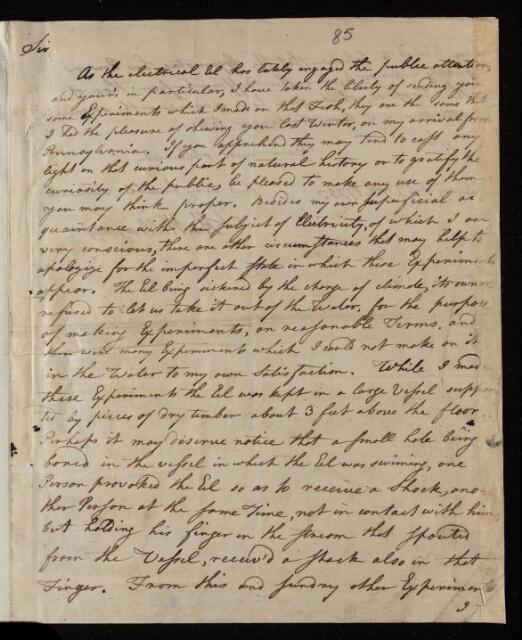 85
Sir
As the electrical Eel has lately engaged the publick attention
and yours in particular, I have taken the liberty of sending you
some Experiments which I made on that Fish, they are the same that
I had the pleasure of shewing you last Winter, on my arrival from
Pennsylvania. If you apprehend they may tend to cast any
light on that curious part of natural history or to gratify the
curiosity of the publick, be pleased to make any use of them
you may think proper. Besides my own superficial ac
quaintance with the subject of Electricity, of which I am
very conscious, there are other circumstances that may help to
apologize for the imperfect State in which these Experiments
appear. The Eel being sickened by the change of climate, its owner
refused to let us take it out of the Water, for the purpose
of making Experiments, on reasonable Terms. and
there were many Experiments which I could not make on it
in the Water to my own Satisfaction. While I made
these Experiments the Eel was kept in a large Vessel suppor
ted by pieces of dry timber about 3 feet above the floor.
Perhaps it may deserve notice that a small hole being
bored in the vessel in which the Eel was swiming, one
Person provoked the Eel so as to receive a Shock, ano-
ther Person at the same Time, not in contact with him
but holding his finger in the stream that spouted
from the Vessel, receiv'd a shock also in that
Finger. From this and sundry other Experiments